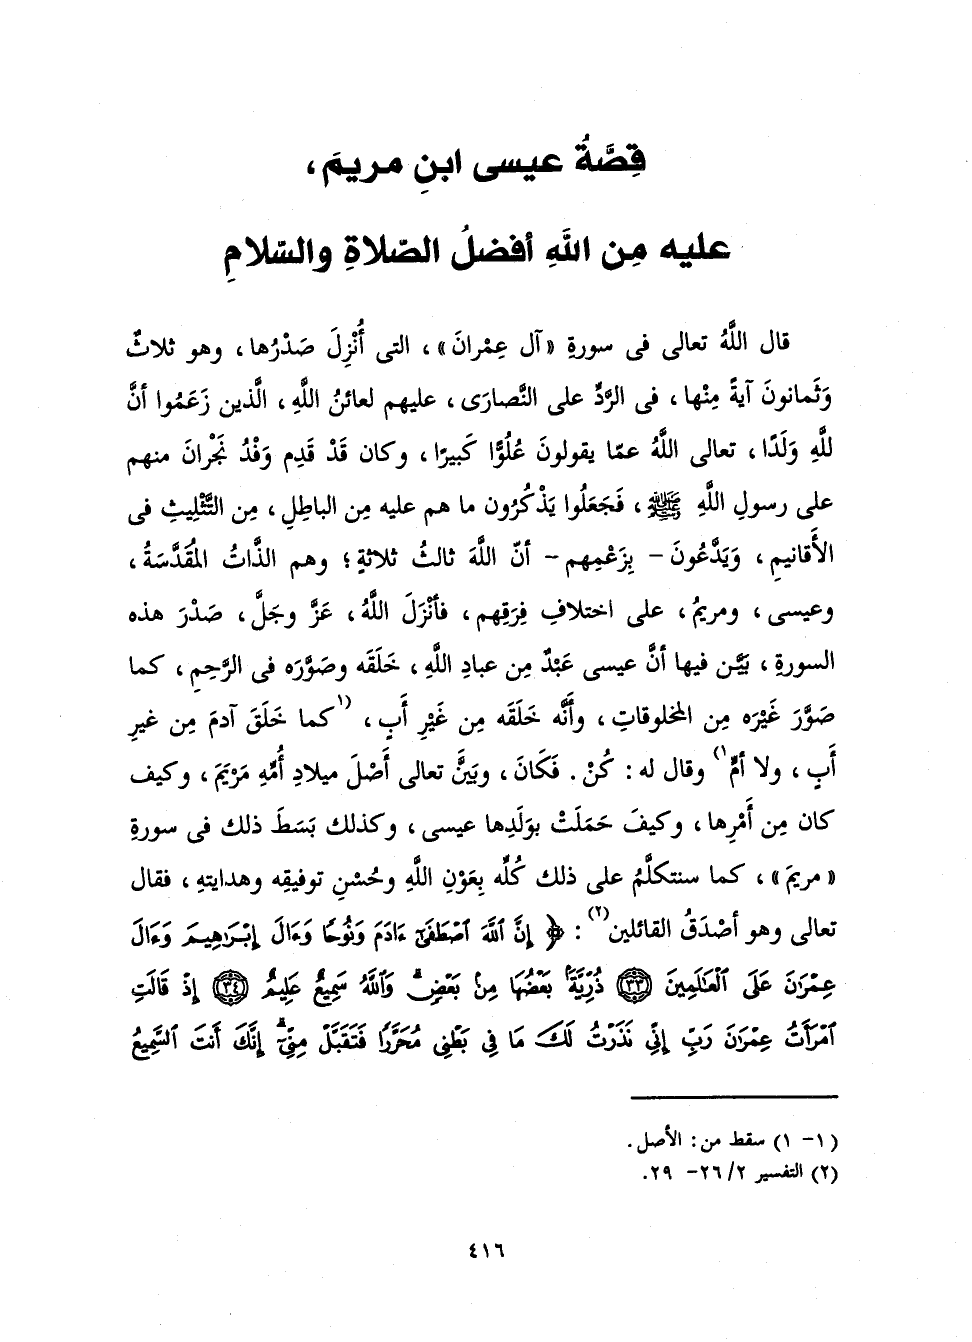 قِصَّةُ عيسى ابنِ مريمَ،
عليه مِن اللَّهِ أفضلُ الصّلاةِ والسّلامِ
قال اللَّهُ تعالى فى سورةِ «آل عِمْرانَ»، التى أُنْزِلَ صَدْرُها، وهو ثلاثٌ
وَثَمانونَ آيةً مِنْها، فى الرَّدِّ على النَّصارَى، عليهم لعائنُ اللَّهِ، الَّذين زَعَمُوا أنَّ
للَّهِ وَلَدًا، تعالى اللَّهُ عمّا يقولونَ عُلُوًّا كَبيرًا، وكان قَدْ قَدِم وَفْدُ نَجْرانَ منهم
على رسولِ اللَّهِ ﷺ، فَجَعَلُوا يَذْكُرُون ما هم عليه مِن الباطِلِ، مِن التَّثْلِيثِ فى
الأَقانيمِ، وَيَدَّعُونَ - بِزَعْمِهم - أنّ اللَّهَ ثالثُ ثلاثةٍ؛ وهم الذَّاتُ المُقَدَّسَةُ،
وعيسى، ومريمُ، على اختلافِ فِرَقِهم، فأنْزَلَ اللَّهُ، عَزَّ وجَلَّ، صَدْرَ هذه
السورةِ، بَيَّن فيها أنَّ عيسى عَبْدٌ مِن عبادِ اللَّهِ، خَلَقَه وصَوَّرَه فى الرَّحِمِ، كما
صَوَّرَ غَيْرَه مِن المخلوقاتِ، وأَنَّه خَلَقَه مِن غَيْرِ أَبٍ، (١كما خَلَقَ آدمَ مِن غيرِ
أَبٍ، ولا أمٍّ١) وقال له: كُنْ. فَكَانَ، وبَيَّنَ تعالى أَصْلَ ميلادِ أُمِّهِ مَرْيَمَ، وكيف
كان مِن أَمْرِها، وكيفَ حَمَلَتْ بوَلَدِها عيسى، وكذلك بَسَطَ ذلك فى سورةِ
«مريمَ»، كما سنتكلَّمُ على ذلك كُلِّه بِعَوْنِ اللَّهِ وحُسْنِ توفيقِه وهدايتِهِ، فقال
تعالى وهو أصْدَقُ القائلين(٢): ﴿ إِنَّ ٱللَّهَ ٱصْطَفَىٰٓ ءَادَمَ وَنُوحًا وَءَالَ إِبْرَٰهِيمَ وَءَالَ
عِمْرَٰنَ عَلَى ٱلْعَٰلَمِينَ ﴿٣٣﴾ ذُرِّيَّةًۢ بَعْضُهَا مِنۢ بَعْضٍۗ وَٱللَّهُ سَمِيعٌ عَلِيمٌ ﴿٣٤﴾ إِذْ قَالَتِ
ٱمْرَأَتُ عِمْرَٰنَ رَبِّ إِنِّى نَذَرْتُ لَكَ مَا فِى بَطْنِى مُحَرَّرًا فَتَقَبَّلْ مِنِّىٓۖ إِنَّكَ أَنتَ ٱلسَّمِيعُ
(١ - ١) سقط من: الأصل.
(٢) التفسير ٢/ ٢٦ - ٢٩.
٤١٦